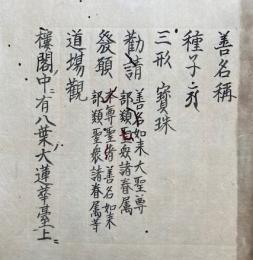 善名稱
種子
三形 寳珠
勸請 善名如来大聖尊
部類聖衆諸眷属
發願 本尊聖者善名如来
部類聖衆諸眷属等
道場觀
樓閣中有八葉大蓮華臺上